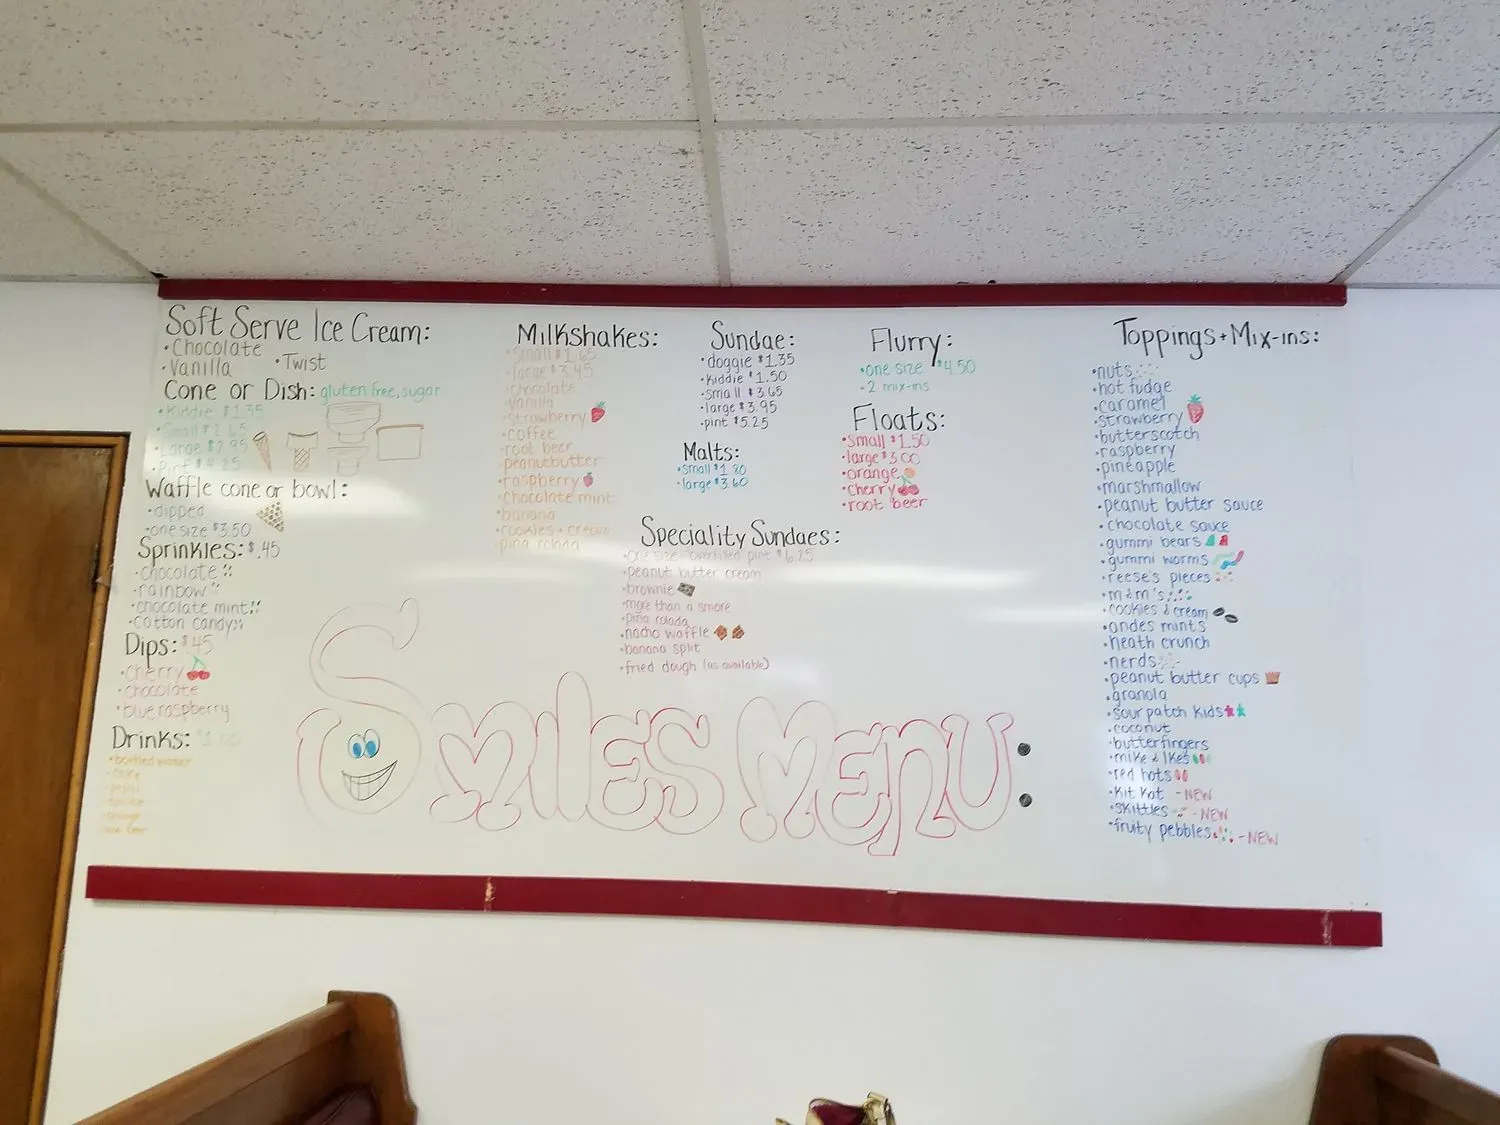 Soft Serve Ice Cream:
•Chocolate
•Vanilla •Twist
Cone or Dish: gluten free, sugar
•Kiddie $1.35
•Small $2.65
•Large $2.95
•Pint $4.25
Waffle cone or bowl:
•dipped
•one size $3.50
Sprinkles: $.45
•chocolate
•rainbow
•chocolate mint
•cotton candy
Dips: $.45
•cherry
•chocolate
•blue raspberry
Drinks:
•bottled water
Milkshakes:
•Small $1.65
•large $3.45
•chocolate
•vanilla
•strawberry
•coffee
•root beer
•peanutbutter
•raspberry
•chocolate mint
•banana
•cookies + cream
•piña colada
Sundae:
•doggie $1.35
•kiddie $1.50
•small $3.65
•large $3.95
•pint $5.25
Malts:
•small $1.80
•large $3.60
Flurry:
•one size $4.50
•2 mix-ins
Floats:
•Small $1.50
•large $3.00
•orange
•cherry
•root beer
Speciality Sundaes:
•one size "overfilled pint" $6.25
•peanut butter cream
•brownie
•more than a smore
•piña colada
•nacho waffle
•banana split
•fried dough (as available)
Smiles Menu:
Toppings + Mix-ins:
•nuts
•hot fudge
•caramel
•strawberry
•butterscotch
•raspberry
•pineapple
•marshmallow
•peanut butter sauce
•chocolate sauce
•gummi bears
•gummi worms
•reese's pieces
•m&m's
•cookies & cream
•andes mints
•heath crunch
•nerds
•peanut butter cups
•granola
•sour patch kids
•coconut
•butterfingers
•mike & Ikes
•red hots
•kit kat -NEW
•skittles -NEW
•fruity pebbles -NEW